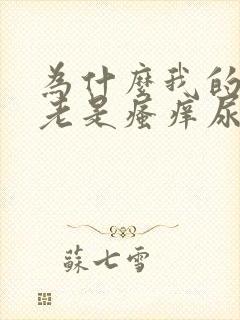 為什麼我的
老是瘙痒尿
蘇七雪